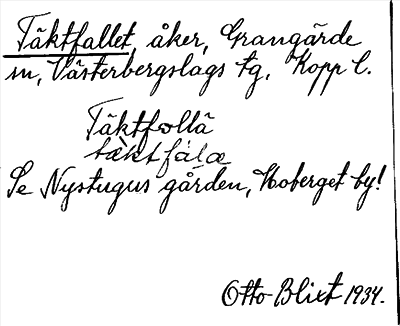 Täktfallet, åker, Grangärde
sn, Västerbergslags tg, Kopp l.
Täktfollä
tæktfàlæ
Se Nystugus gården, Hoberget by!
Otto Blixt 1934.